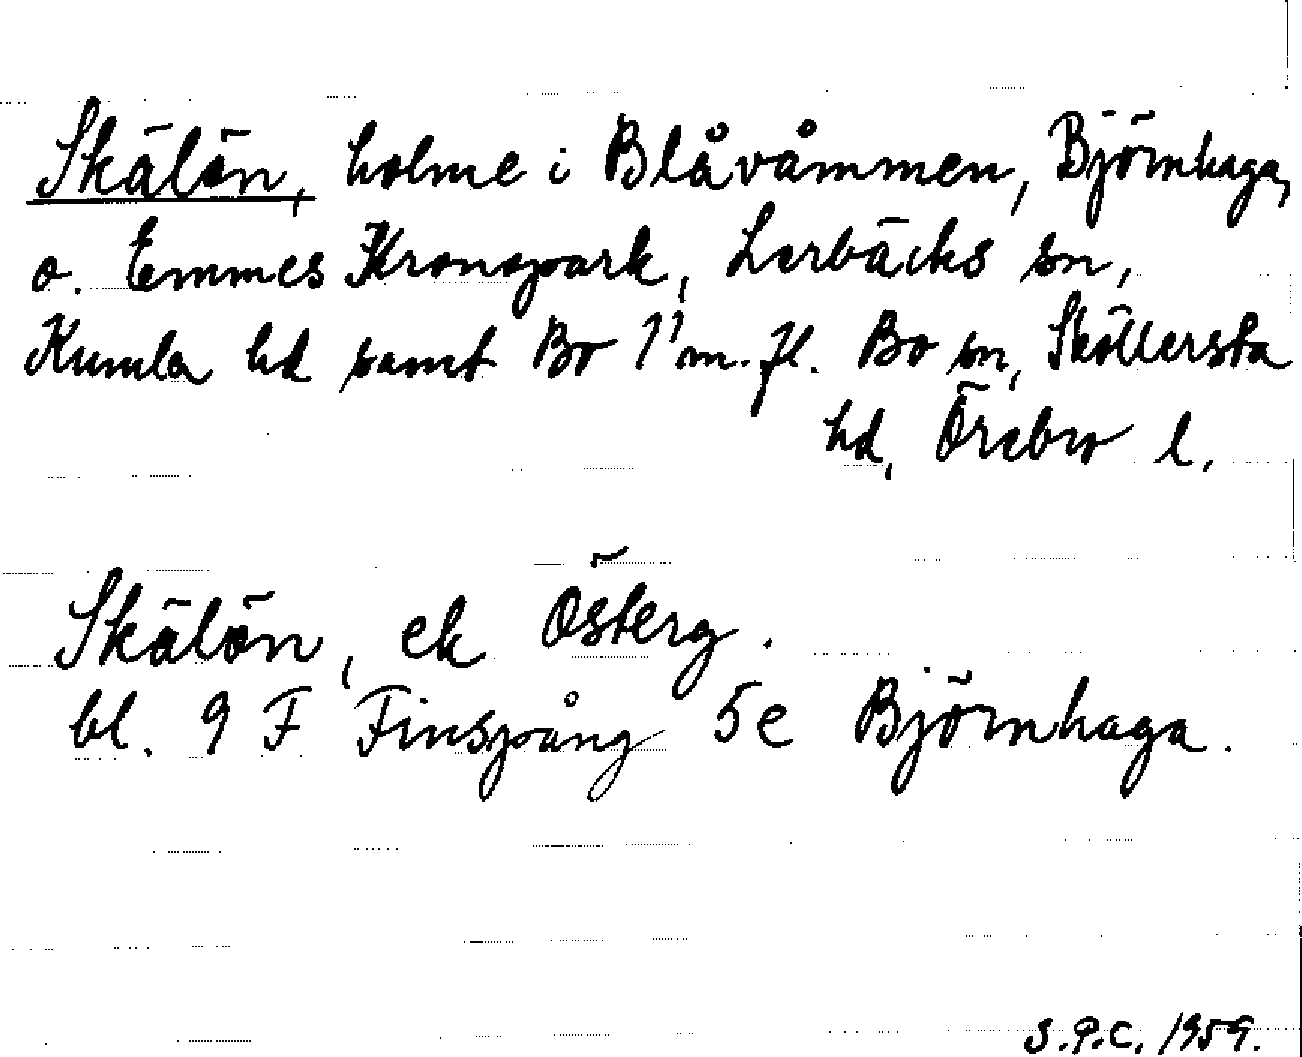 Skälön, holme i Blåvåmmen, Björnhaga,
o. Emmes Kronopark, Lerbäcks sn,
Kumla hd samt Bo 1¹ m. fl. Bo sn, Sköllersta
hd, Örebro l.
Skälön, ek Österg.
bl. 9 F Finspång 5e Björnhaga.
S.P.C. 1959.